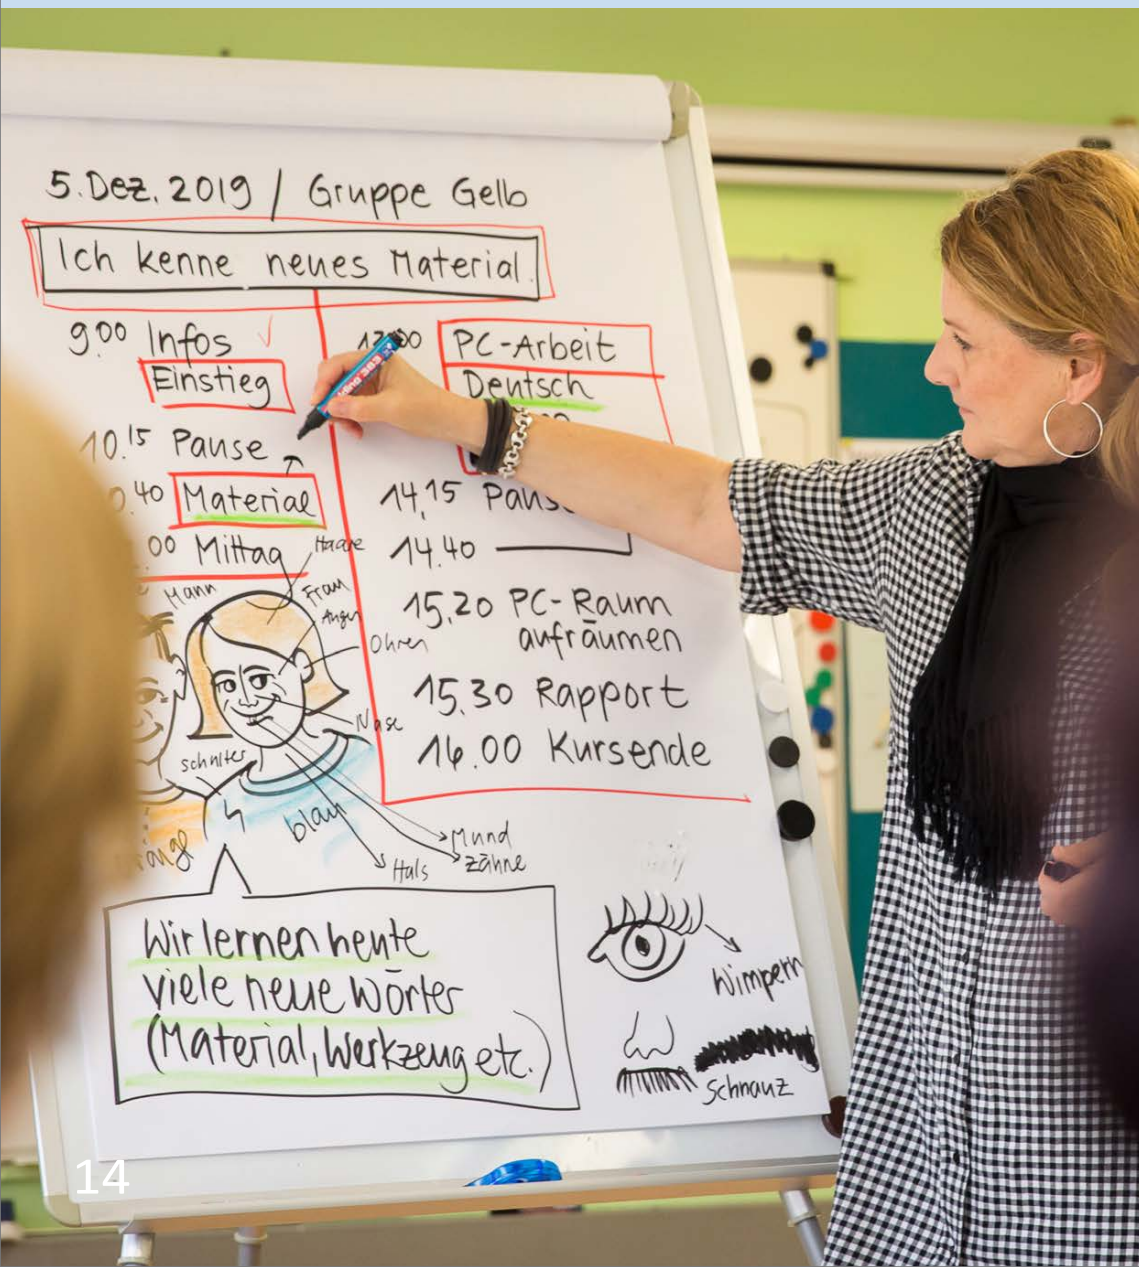 5. Dez. 2019 / Gruppe Gelb
Ich kenne neues Material.
9.00 Infos
Einstieg
10.15 Pause
40 Material
00 Mittag
PC-Arbeit
Deutsch
14,15
14.40
15,20 PC-Raum
aufräumen
15.30 Rapport
16.00 Kursende
Haare
Mann
Frau
Augen
Ohren
Nase
schulter
blau
Mund
Zähne
Hals
Wir lernen heute
viele neue Wörter
(Material, Werkzeug etc.)
Wimpern
Schnauz
14